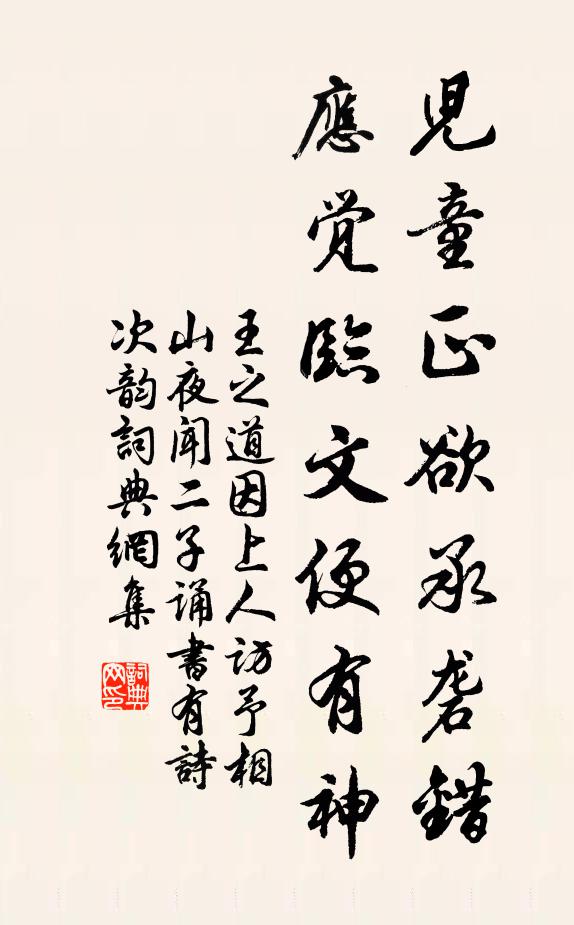 児童正欲承砻錯
應覚臨文便有神
王之道因上人訪予相
山夜聞二子誦書有詩
次韵詞典網集
詞典
网印